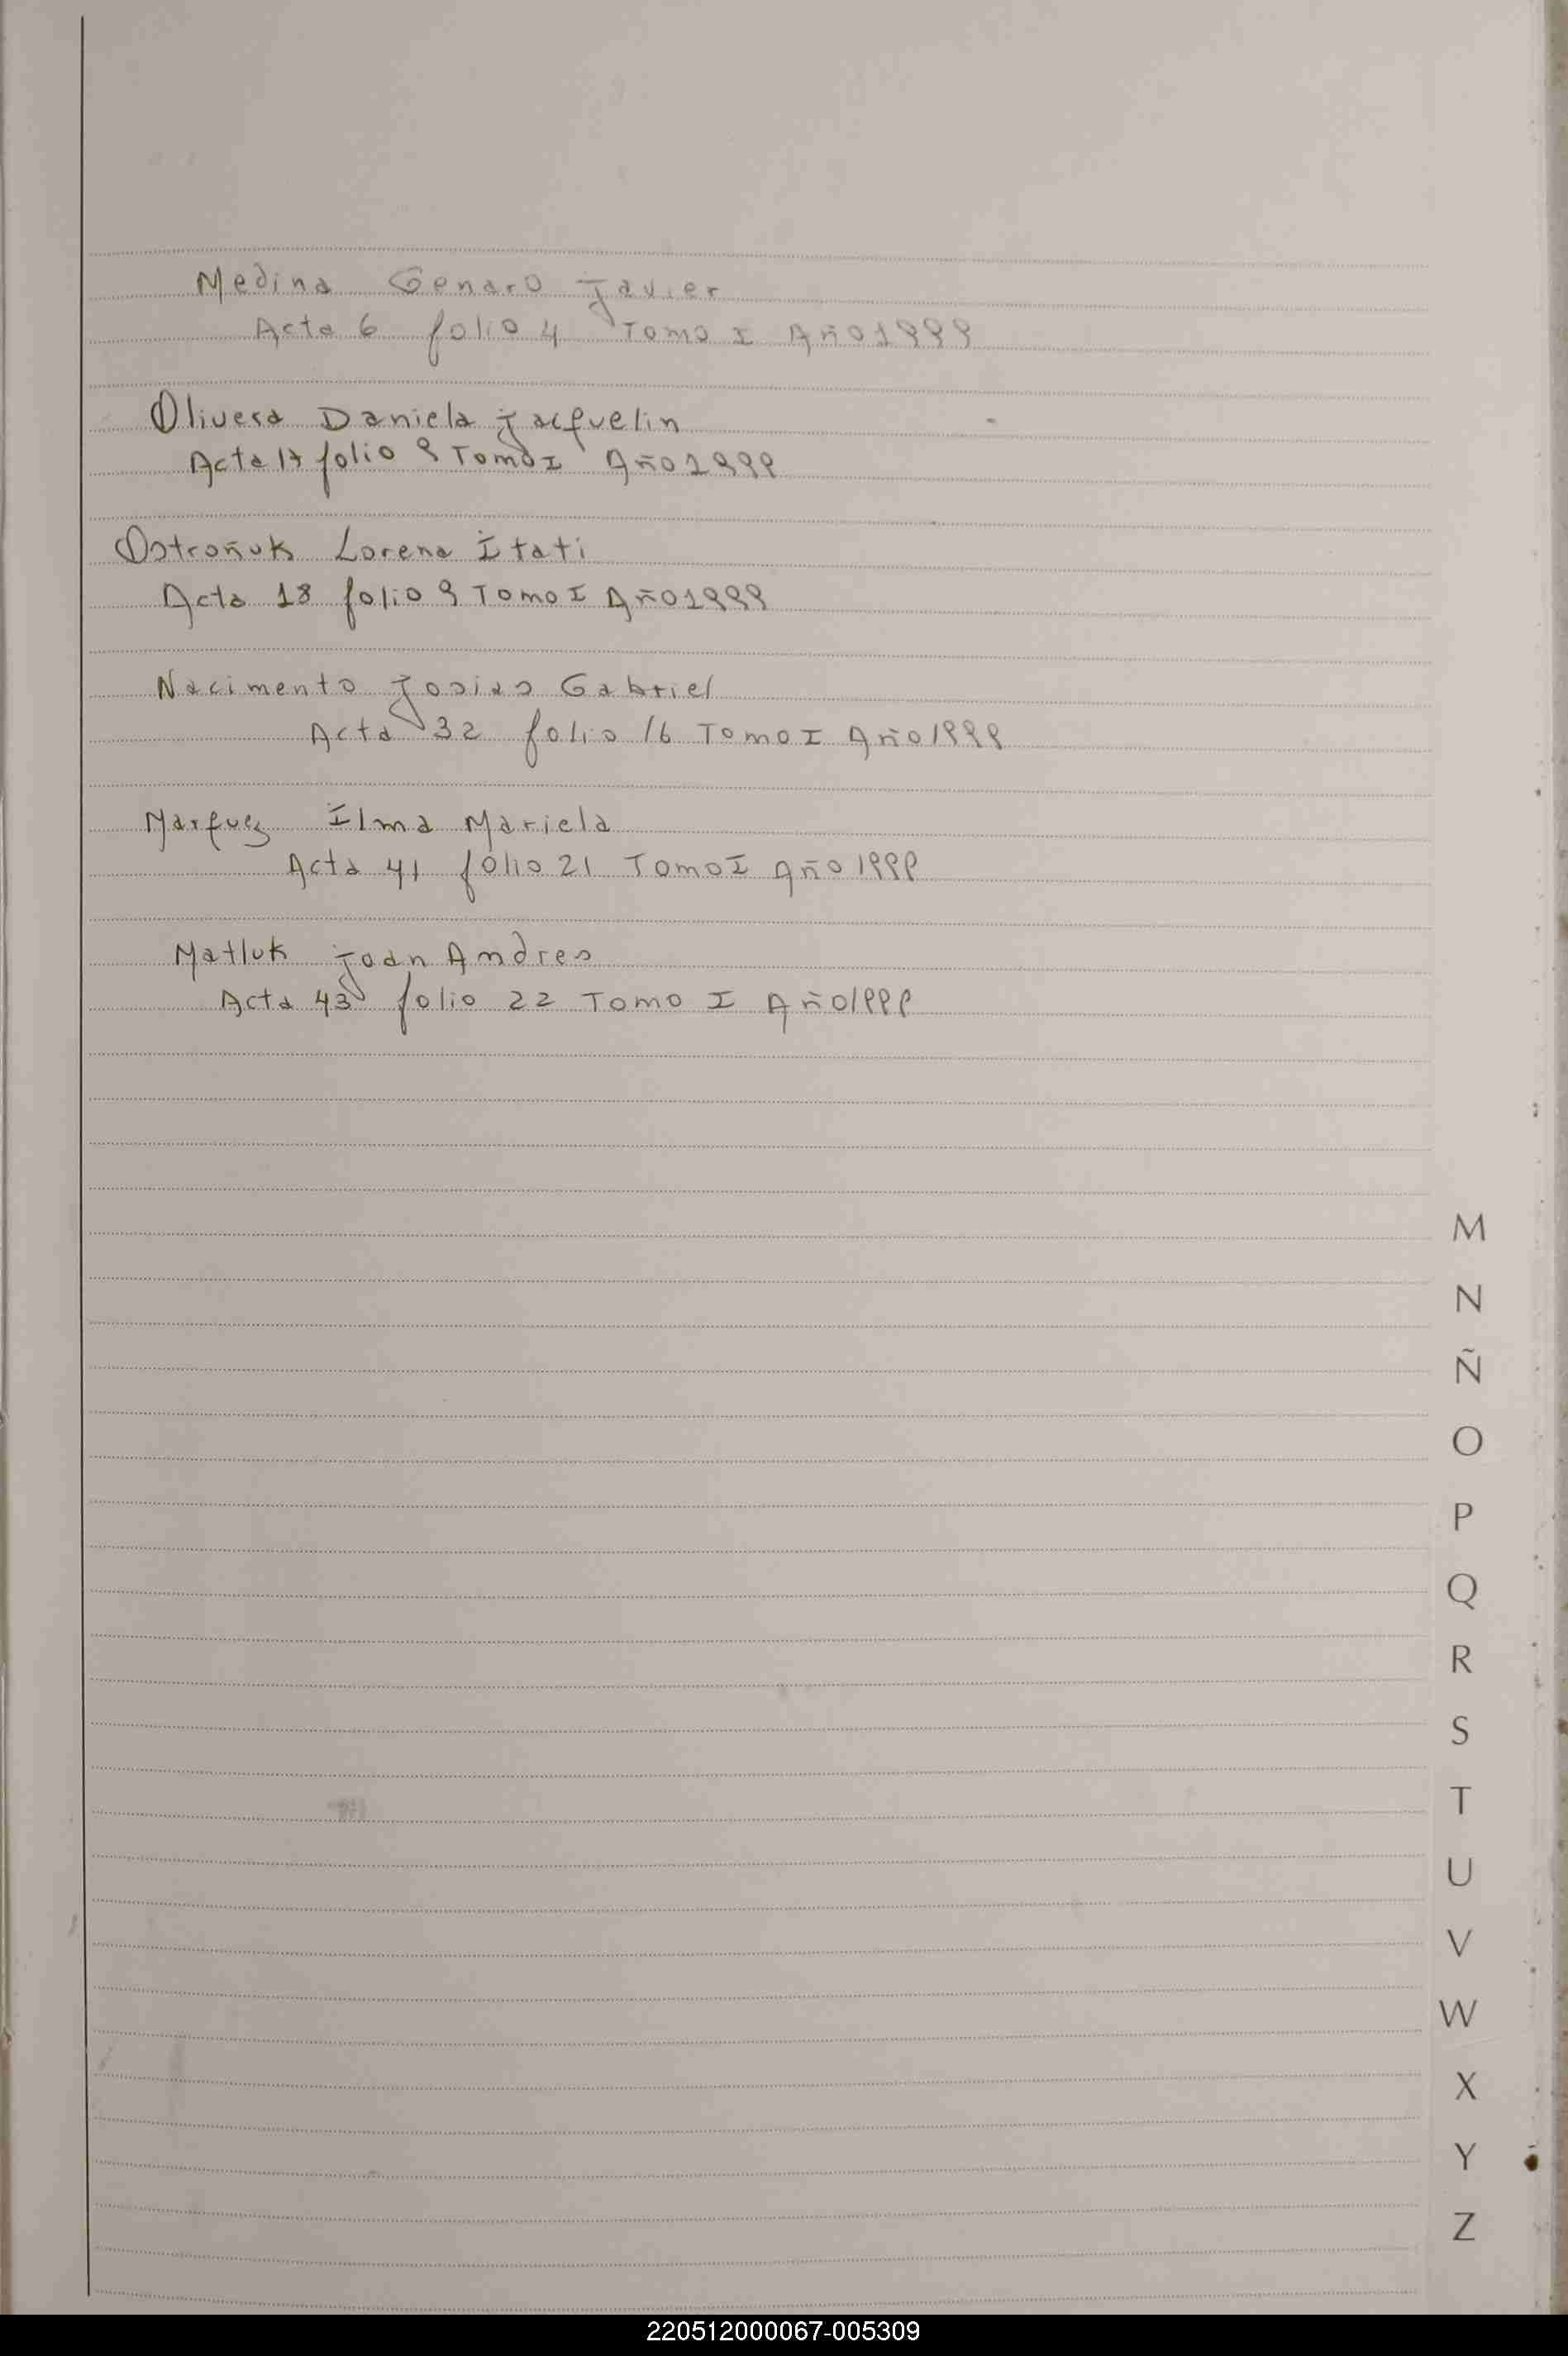 Medina Genaro Javier
Acta 6 folio 4 Tomo I Año 1999
Olivera Daniela Jacquelin
Acta 17 folio 9 Tomo I Año 1999
Ostroñuk Lorena Itati
Acta 18 folio 9 Tomo I Año 1999
Nacimento Josias Gabriel
Acta 32 folio 16 Tomo I Año 1999
Marquez Ilma Mariela
Acta 41 folio 21 Tomo I Año 1999
Matluk Joan Andres
Acta 43 folio 22 Tomo I Año 1999
M
N
Ñ
O
P
Q
R
S
T
U
V
W
X
Y
Z
220512000067-005309